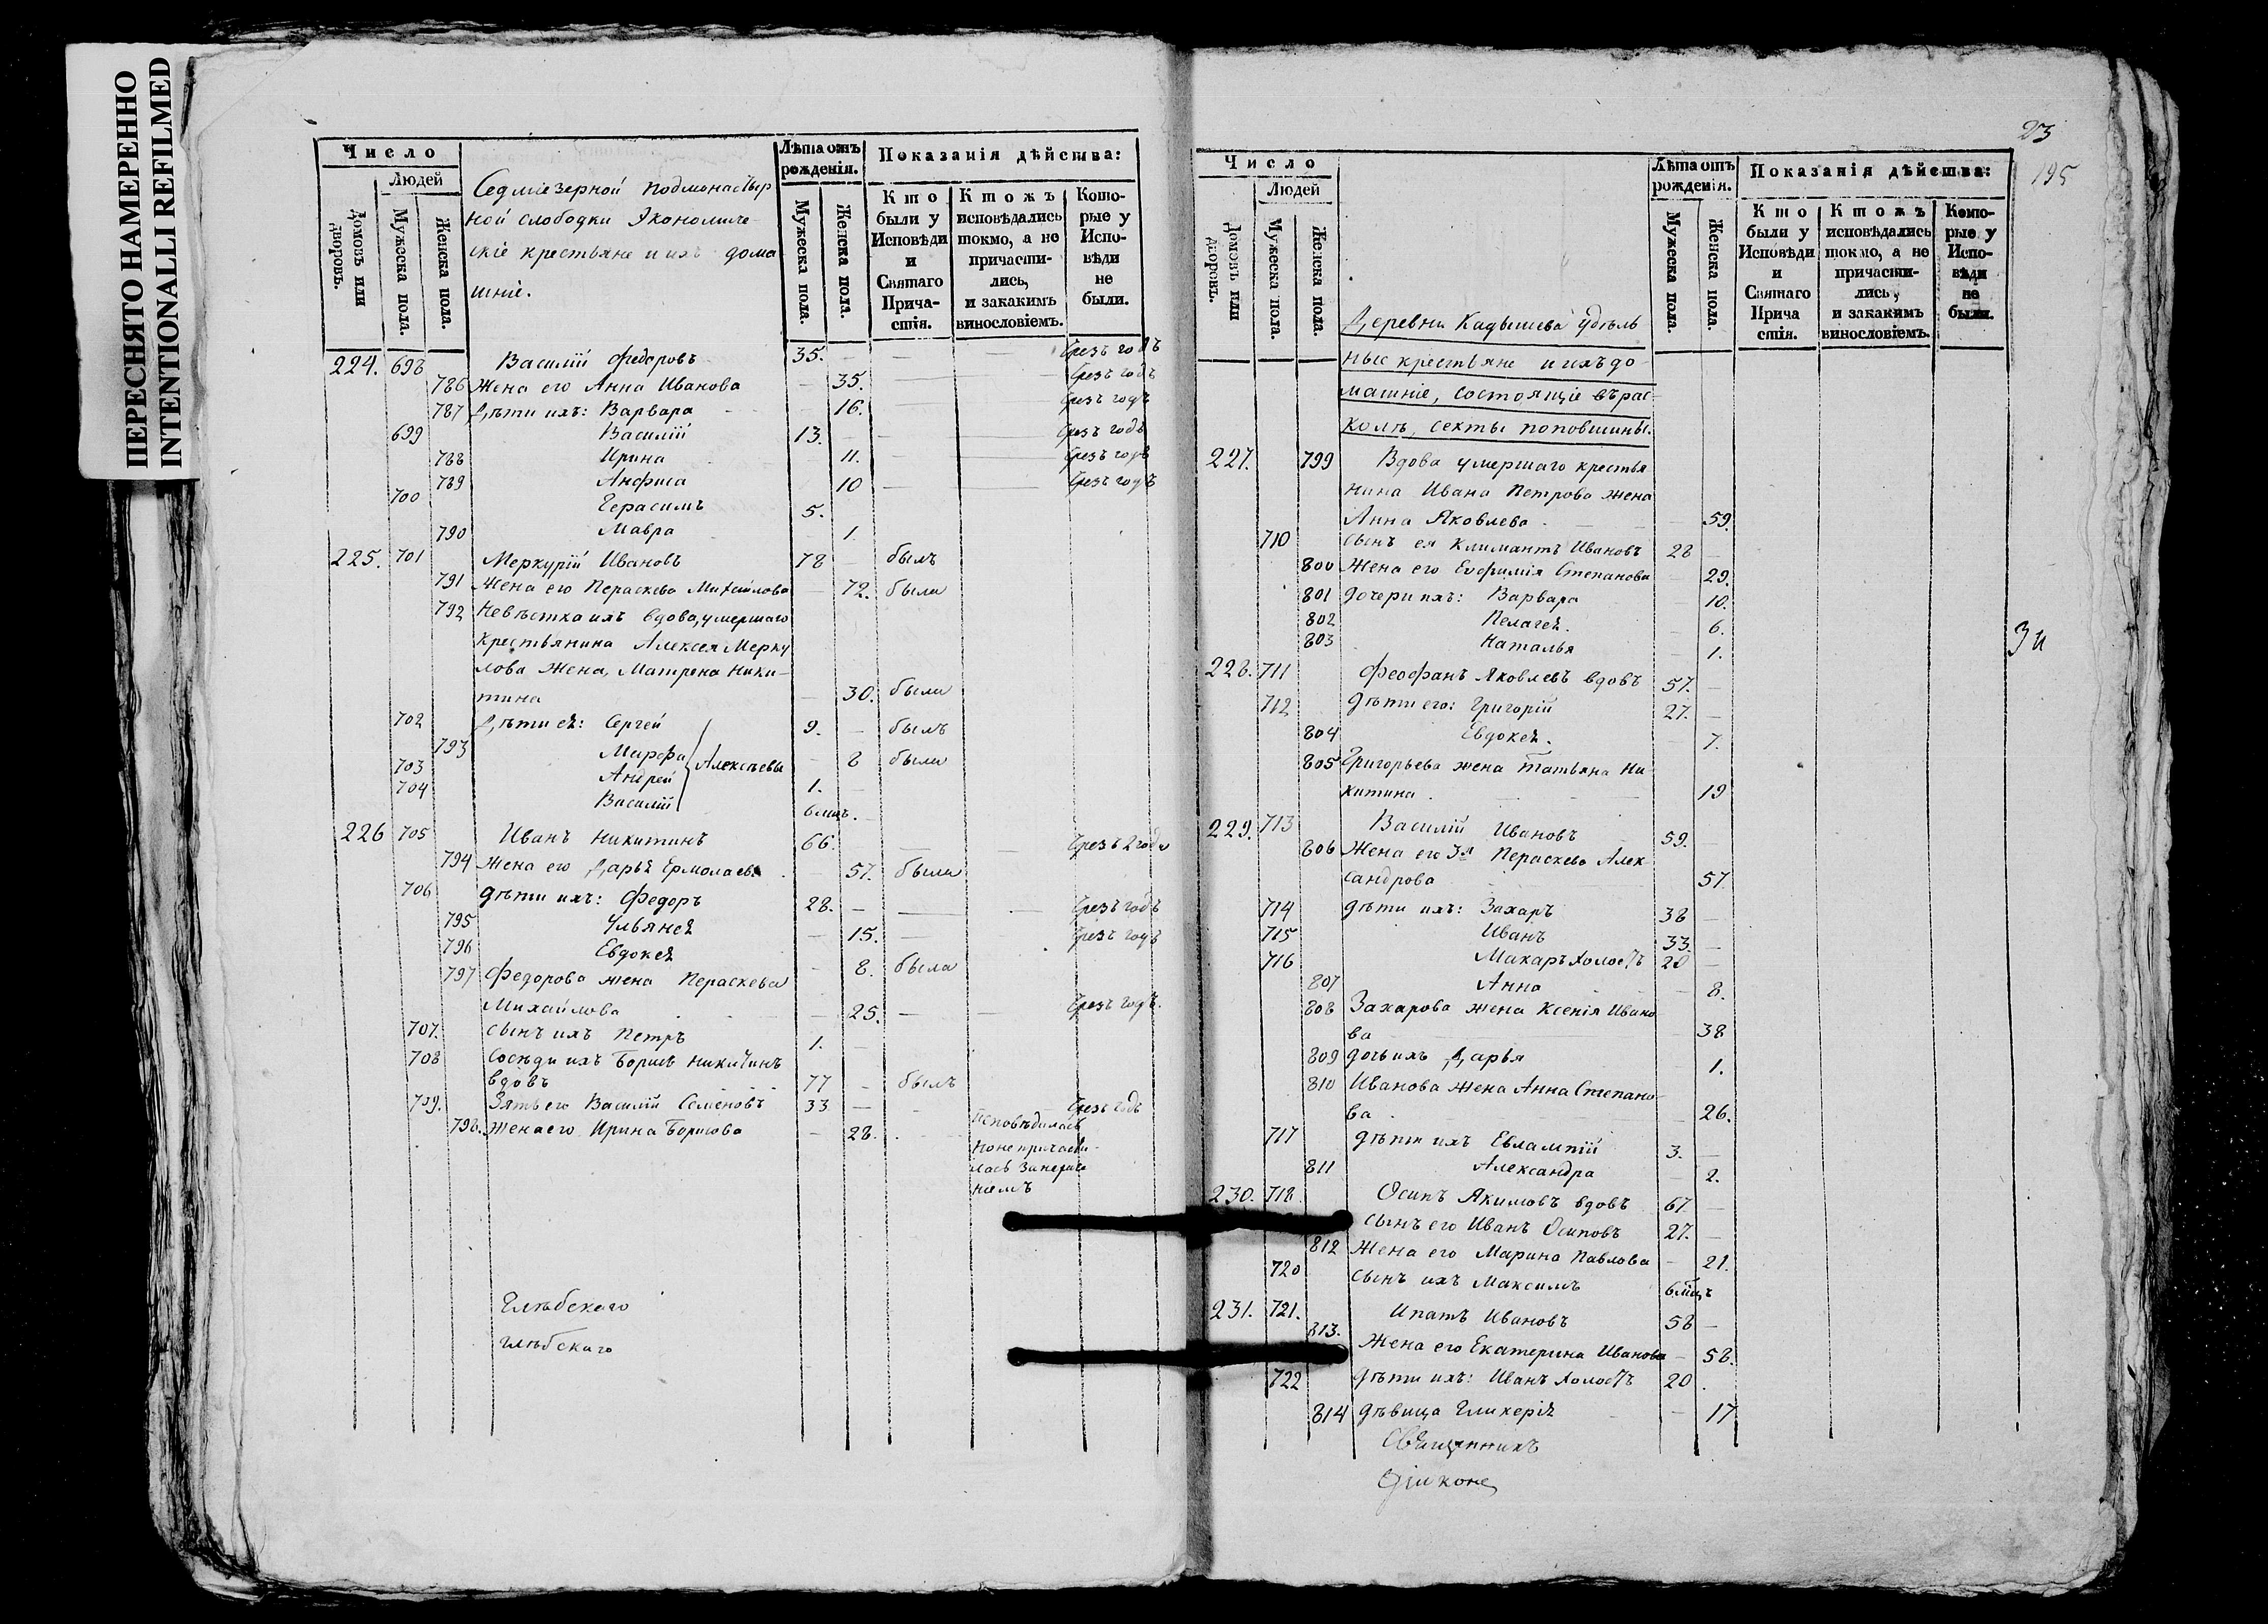 ПЕРЕСНЯТО НАМЕРЕННО
INTENTIONALLI REFILMED
Число
Людей
Домовъ или дворовъ.
Мужеска пола.
Женска пола.
Седміезерной подмонастыр
ной слободки Экономиче-
скіе крестьяне и ихъ дома
шніе.
Лѣта отъ рожденія.
Мужеска пола.
Женска пола.
Показанія дѣйства:
Кто были у Исповѣди и Святаго Прича-стія.
Ктожъ исповѣдались токмо, а не причасти-лись, и закакимъ винословіемъ.
Кото-рые у Испо-вѣди не были.
224. 698 Василій Федоровъ 35. — Чрезъ годъ
786 Жена его Анна Иванова — 35. Чрезъ годъ
787 Дѣти ихъ: Варвара 16. Чрезъ годъ
699 Василій 13. — Чрезъ годъ
788 Ирина 11. Чрезъ годъ
789 Анфиса 10 — Чрезъ годъ
700 Герасимъ 5.
790 Мавра 1.
225. 701 Меркурій Ивановъ 78 — былъ
791 Жена его Пераскева Михайлова — 72. была
792 Невѣстка ихъ вдова, умершаго
крестьянина Алексея Мерку
лова жена, Матрена Ники-
тина — 30. была
702 Дѣти ея: Сергей 9. — былъ
793 Марфа Алексѣевы — 8 была
703 Андрей 1. —
704 Василій 6 мцъ.
226 705 Иванъ Никитинъ 66. — Чрезъ 2 года
794 Жена его Дарья Ермолаева — 57. была
706 Дѣти ихъ: Федоръ 28. — Чрезъ годъ
795 Ульянея — 15. — Чрезъ годъ
796 Евдокея — 8. была
797 Федорова жена Пераскева
Михайлова — 25. — Чрезъ годъ.
707. сынъ ихъ Петръ 1. —
708 Сосѣди ихъ Борисъ Никитинъ
вдовъ 77 — былъ
709. Зять его Василій Семеновъ 33 — Чрезъ годъ
798. Жена его Ирина Борисова — 28. исповѣдалась
но не причасти-
лась за нераче
ніемъ
Глѣбскаго
Глѣбскаго
23
195
Число
Людей
Домовъ или дворовъ.
Мужеска пола.
Женска пола.
Лѣта отъ рожденія.
Мужеска пола.
Женска пола.
Показанія дѣйства:
Кто были у Исповѣди и Святаго Прича стія.
Ктожъ исповѣдались токмо, а не причасти-лись, и закакимъ винословіемъ.
Кото-рые у Испо-вѣди не были.
Деревни Кадышева Удѣль
ные крестьяне и ихъ до-
машніе, состоящіе въ рас-
колѣ, секты поповшины.
227. 799 Вдова умершаго крестья
нина Ивана Петрова жена
Анна Яковлева — 59.
710 сынъ ея Климантъ Ивановъ 28 —
800 Жена его Евфимія Степанова — 29.
801 дочери ихъ: Варвара — 10.
802 Пелагея. — 6.
803 Наталья — 1.
228. 711 Феофанъ Яковлевъ вдовъ 57. —
712 Дѣти его: Григорій 27. —
804 Евдокея. — 7.
805 Григорьева жена Татьяна Ни
китина — 19
229. 713 Василій Ивановъ 59. —
806 Жена его 3я Пераскева Алек
сандрова 57
714 Дѣти ихъ: Захаръ 38 —
715 Иванъ 33. —
716 Макаръ холостъ 20 —
807 Анна — 8.
808 Захарова жена Ксенія Ивано
ва — 38
809 дочь ихъ Дарья 1.
810 Иванова жена Анна Степано-
ва — 26.
717 Дѣти ихъ Евлампій 3. —
811 Александра — 2.
230. 718 Осипъ Якимовъ вдовъ 67. —
сынъ его Иванъ Осиповъ 27. —
812 Жена его Марина Павлова — 21.
720 сынъ ихъ Максимъ 6 мцъ
231. 721. Ипатъ Ивановъ 58 —
813. Жена его Екатерина Иванова — 58.
722 Дѣти ихъ: Иванъ холостъ 20.
814 дѣвица Гликерія — 17
Священникъ
Діаконъ